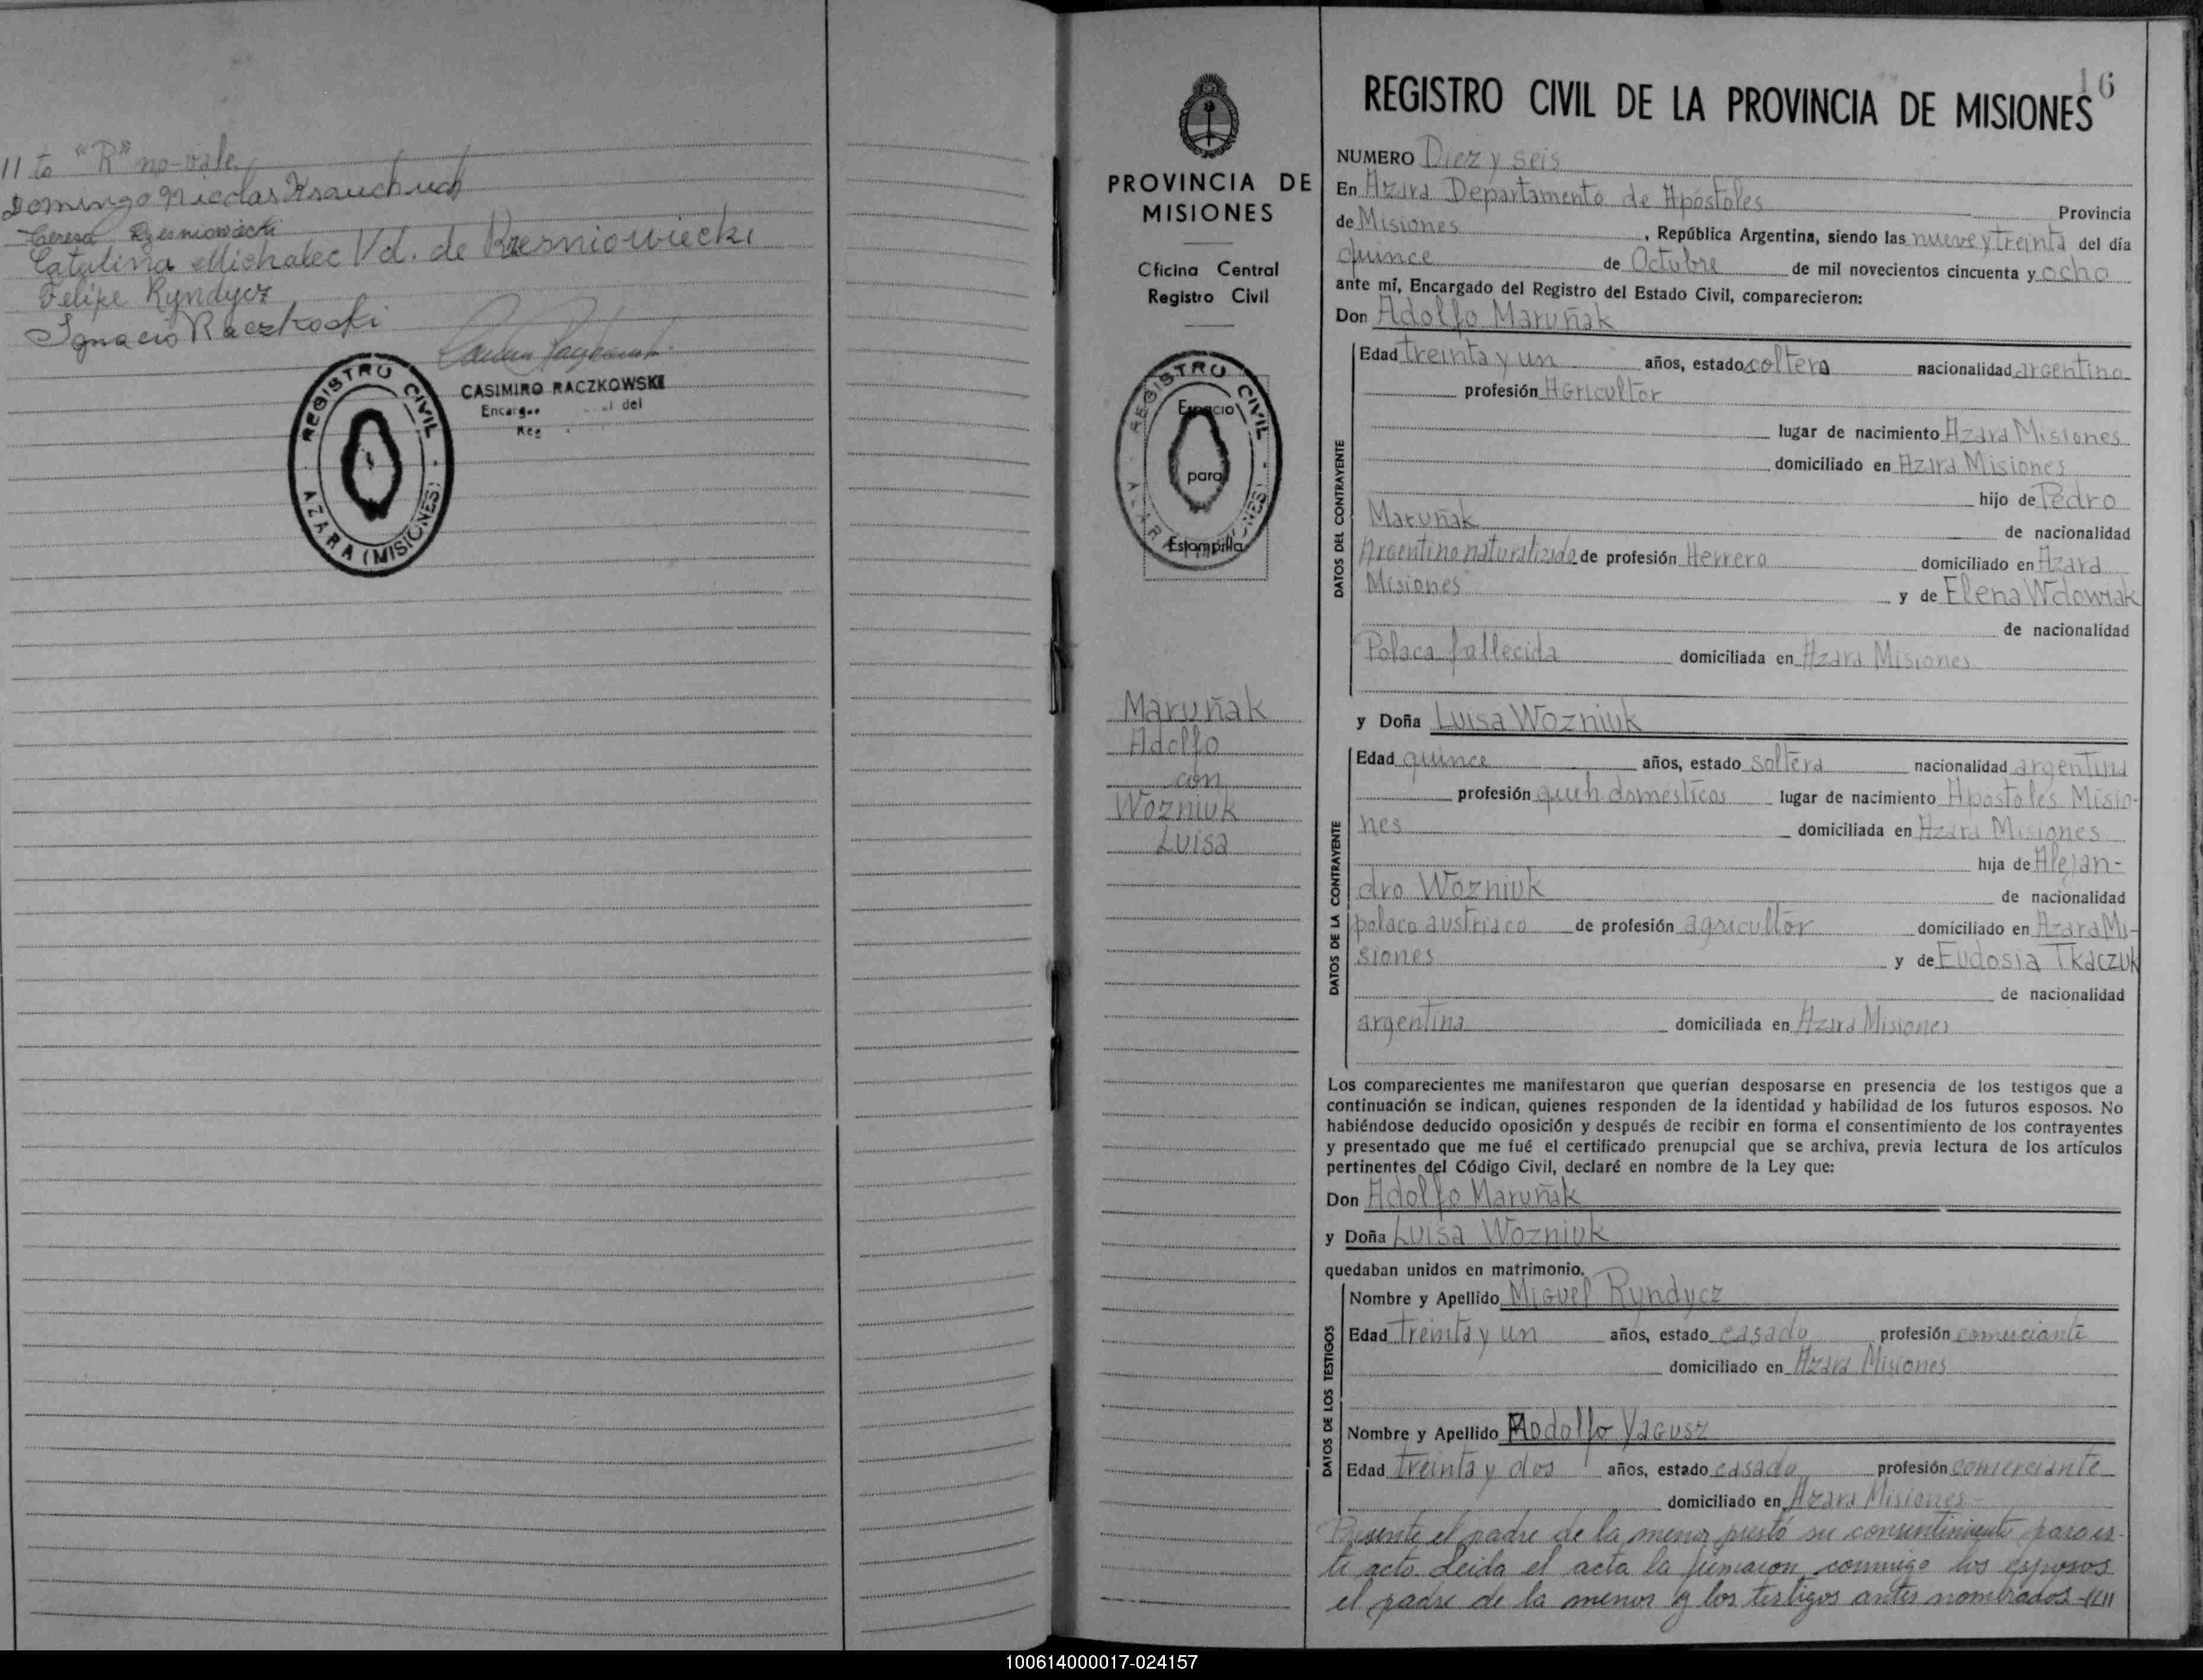 11 to "R" no-vale
Domingo Nicolas Krauchuk
Teresa Rzesniowiecki
Catalina Michalec Vd. de Rzesniowiecki
Felipe Ryndycz
Ignacio Raczkoski
CASIMIRO RACZKOWSKI
del
REGISTRO CIVIL
AZARA (MISIONES)
PROVINCIA DE
MISIONES
Oficina Central
Registro Civil
REGISTRO CIVIL
Espacio
para
Estampilla
Maruñak
Adolfo
con
Wozniuk
Luisa
16
REGISTRO CIVIL DE LA PROVINCIA DE MISIONES
NUMERO Diez y seis
En Azara Departamento de Apóstoles Provincia
de Misiones, República Argentina, siendo las nueve y treinta del día
quince de Octubre de mil novecientos cincuenta y ocho
ante mí, Encargado del Registro del Estado Civil, comparecieron:
Don Adolfo Maruñak
DATOS DEL CONTRAYENTE
Edad treinta y un años, estado soltero nacionalidad argentina
profesión Agricultor
lugar de nacimiento Azara Misiones
domiciliado en Azara Misiones
hijo de Pedro
Maruñak de nacionalidad
Argentino naturalizado de profesión Herrero domiciliado en Azara
Misiones y de Elena Wdowiak
de nacionalidad
Polaca fallecida domiciliada en Azara Misiones
y Doña Luisa Wozniuk
DATOS DE LA CONTRAYENTE
Edad quince años, estado soltera nacionalidad argentina
profesión queh. domésticos lugar de nacimiento Apostoles Misio-
nes domiciliada en Azara Misiones
hija de Alejan-
dro Wozniuk de nacionalidad
polaco austriaco de profesión agricultor domiciliado en Azara Mi-
siones y de Eudosia Tkaczuk
de nacionalidad
argentina domiciliada en Azara Misiones
Los comparecientes me manifestaron que querían desposarse en presencia de los testigos que a
continuación se indican, quienes responden de la identidad y habilidad de los futuros esposos. No
habiéndose deducido oposición y después de recibir en forma el consentimiento de los contrayentes
y presentado que me fué el certificado prenupcial que se archiva, previa lectura de los artículos
pertinentes del Código Civil, declaré en nombre de la Ley que:
Don Adolfo Maruñak
y Doña Luisa Wozniuk
quedaban unidos en matrimonio.
DATOS DE LOS TESTIGOS
Nombre y Apellido Miguel Ryndycz
Edad treinta y un años, estado casado profesión comerciante
domiciliado en Azara Misiones
Nombre y Apellido Rodolfo Yagusz
Edad treinta y dos años, estado casado profesión comerciante
domiciliado en Azara Misiones-
Presente el padre de la menor prestó su consentimiento para es-
te acto leida el acta la firmaron conmigo los esposos
el padre de la menor y los testigos antes nombrados
100614000017-024157